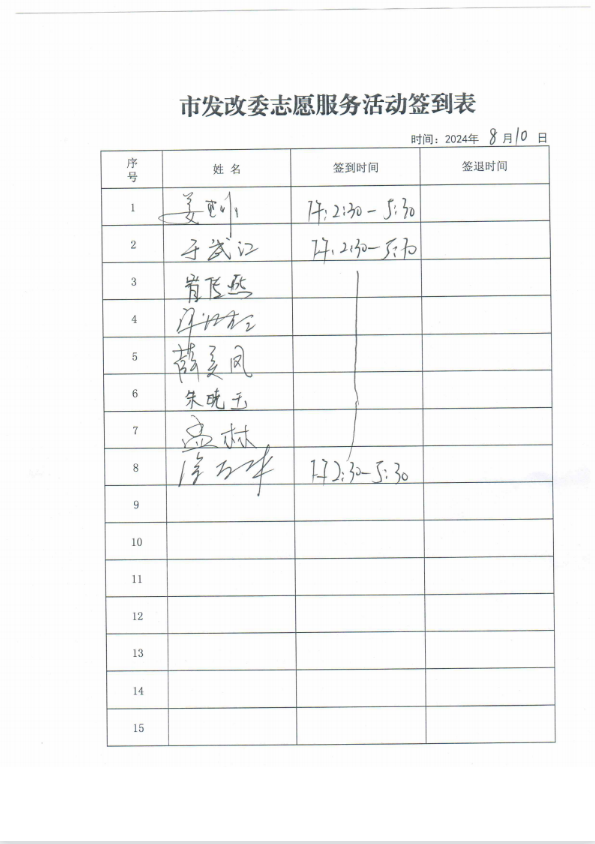 市发改委志愿服务活动签到表
时间：2024年 8月10日
序号 姓名 签到时间 签退时间
1 姜 下午 2:30-5:30
2 于武江 下午 2:30-5:30
3 肖传燕
4
5 薛美凤
6 朱晓玉
7 孟林
8 徐 下午 2:30-5:30
9
10
11
12
13
14
15